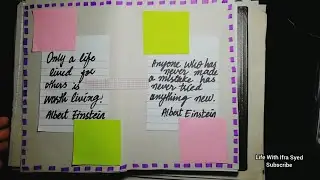 Only a life
lived for
others is
worth living!
Albert Einstein
Anyone who has
never made
a mistake has
never tried
anything new.
Albert Einstein
Life With Ifra Syed
Subscribe